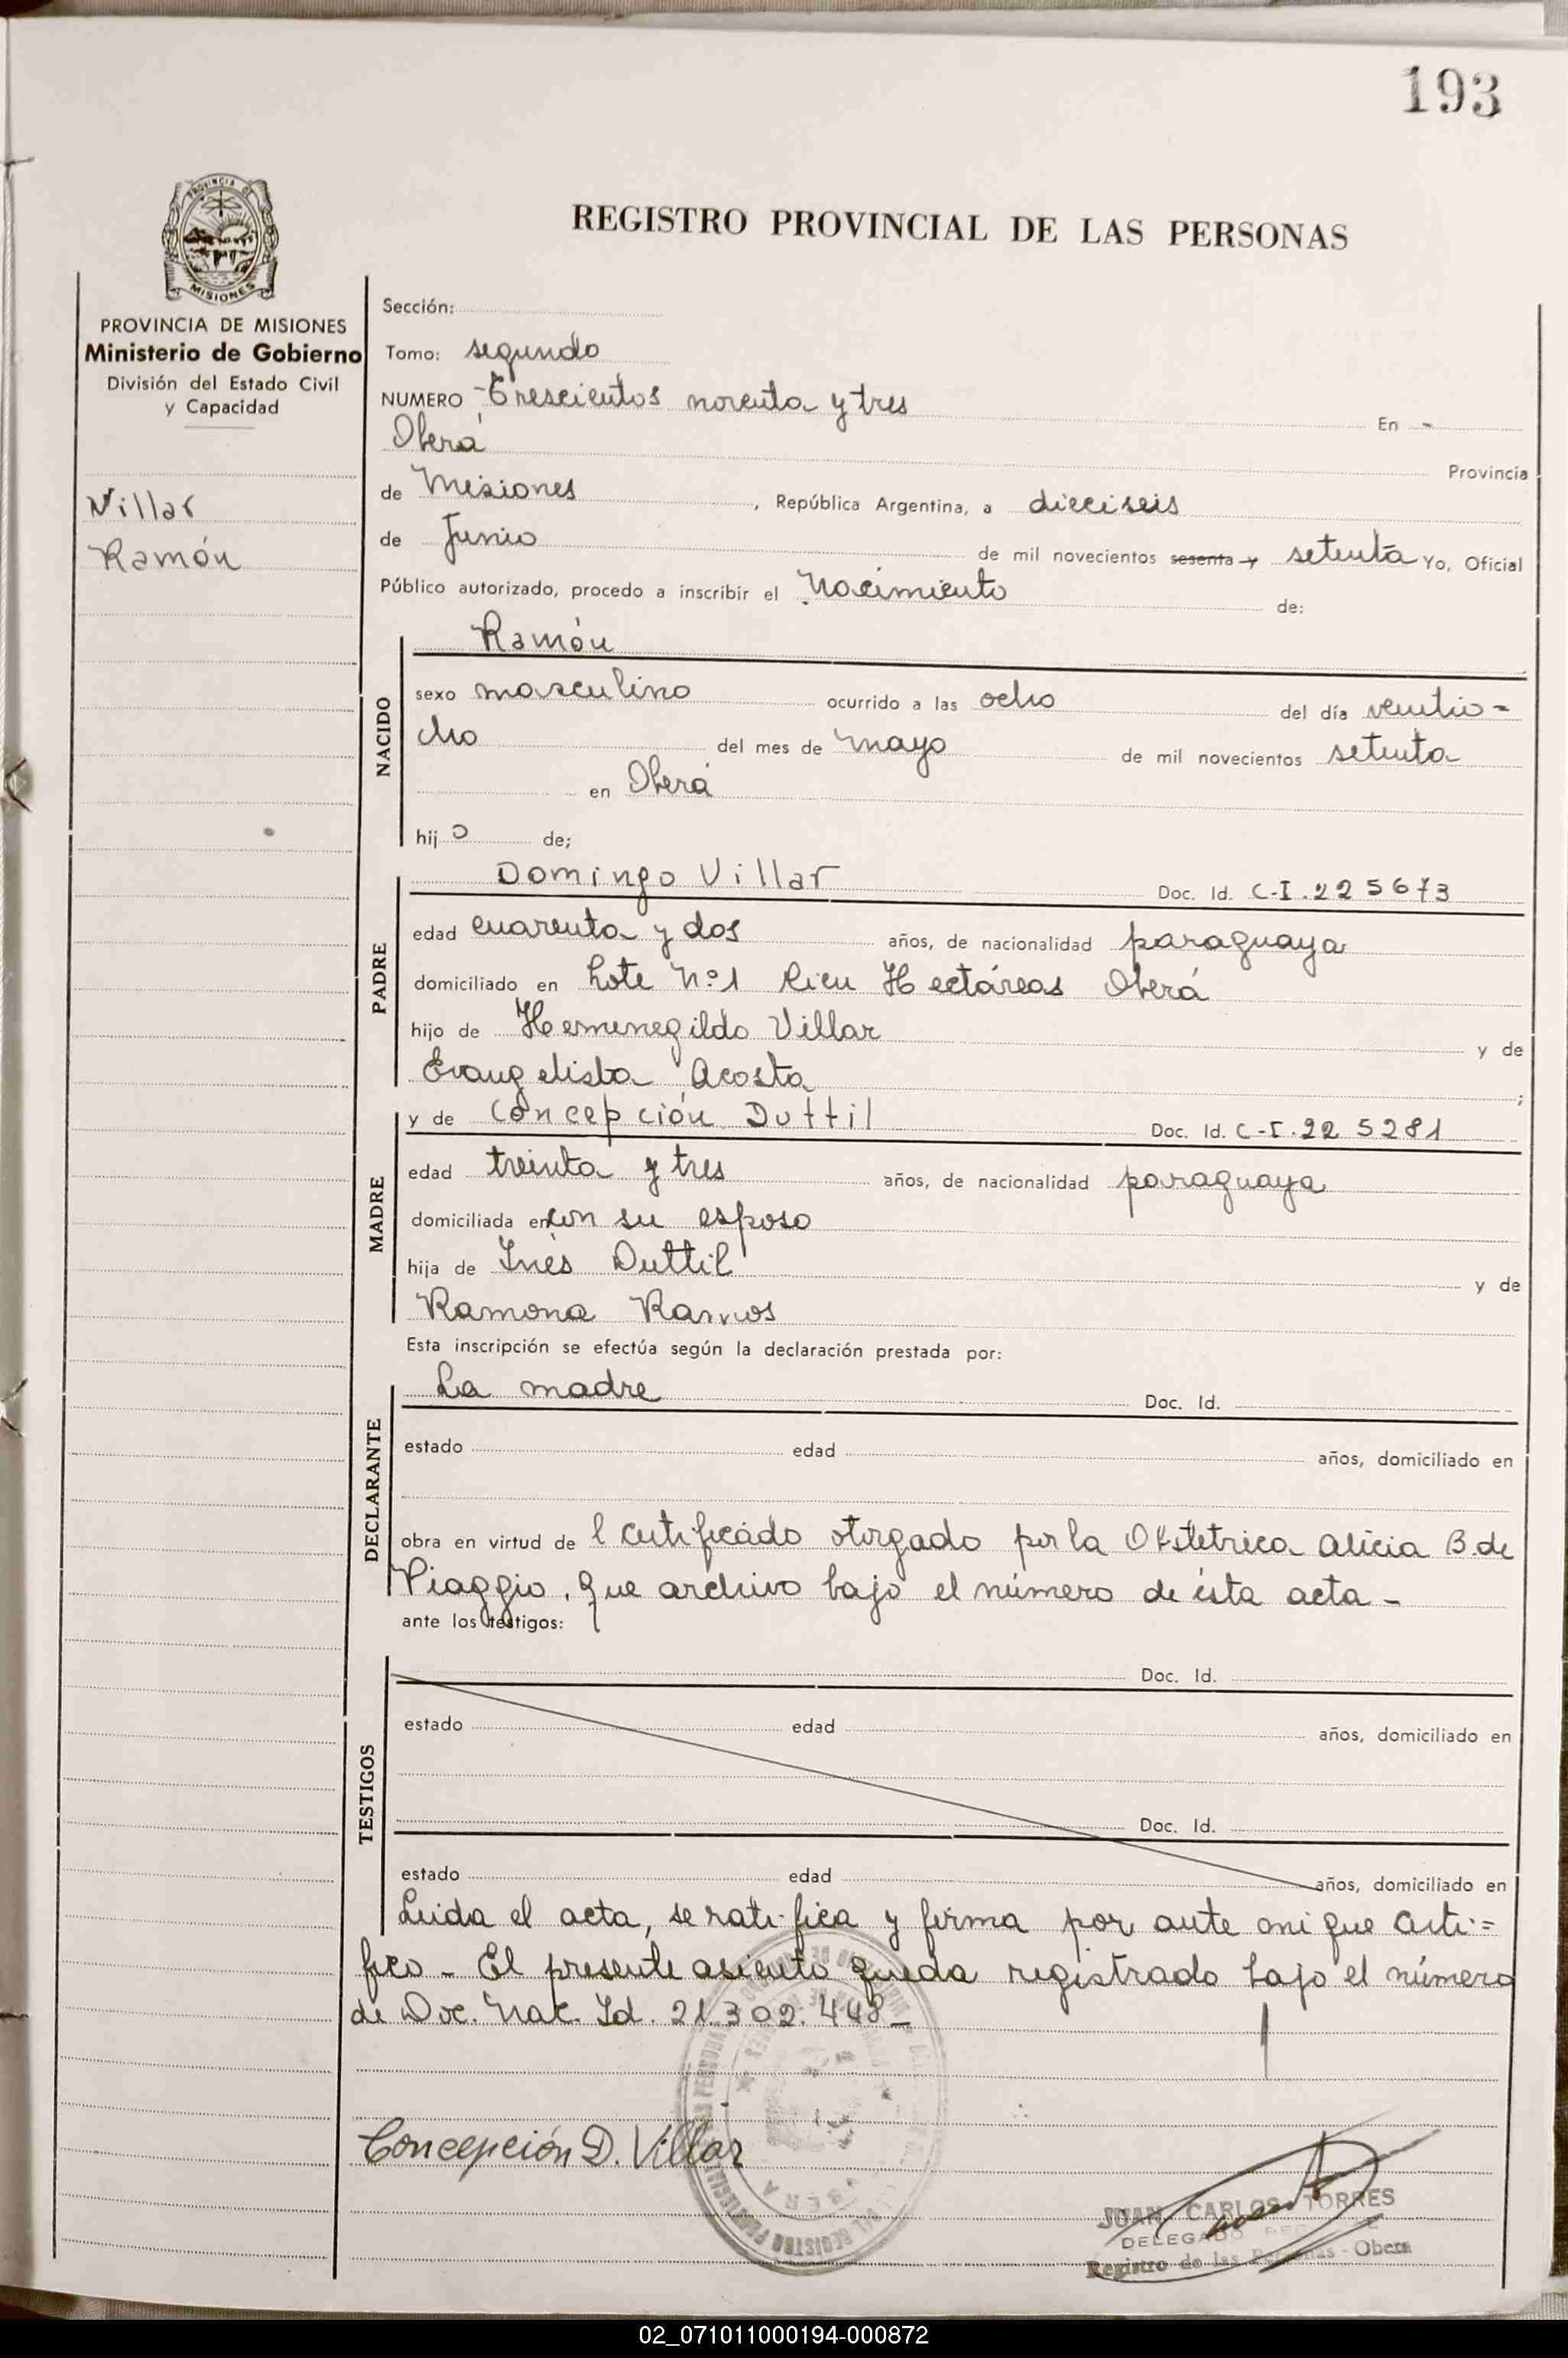 193
REGISTRO PROVINCIAL DE LAS PERSONAS
PROVINCIA DE
MISIONES
PROVINCIA DE MISIONES
Ministerio de Gobierno
División del Estado Civil
y Capacidad
Villar
Ramón
Sección:
Tomo: segundo
NUMERO Trescientos noventa y tres En -
Oberá Provincia
de Misiones, República Argentina, a dieciseis
de Junio de mil novecientos sesenta y setenta Yo, Oficial
Público autorizado, procedo a inscribir el Nacimiento de:
Ramón
NACIDO
sexo masculino ocurrido a las ocho del día ventio-
cho del mes de mayo de mil novecientos setenta
en Oberá
hijo de;
PADRE
Domingo Villar Doc. Id. C-I.225673
edad cuarenta y dos años, de nacionalidad paraguaya
domiciliado en Lote Nº1 Cien Hectáreas Oberá
hijo de Hermenegildo Villar y de
Evangelista Acosta ;
MADRE
y de Concepción Duttil Doc. Id. C-I.225281
edad treinta y tres años, de nacionalidad paraguaya
domiciliada en con su esposo
hija de Inés Duttil y de
Ramona Ramos
Esta inscripción se efectúa según la declaración prestada por:
DECLARANTE
La madre Doc. Id.
estado edad años, domiciliado en
obra en virtud de l certificado otorgado por la Obstetrica Alicia B. de
Piaggio. Que archivo bajo el número de ésta acta -
ante los testigos:
TESTIGOS
Doc. Id.
estado edad años, domiciliado en
Doc. Id.
estado edad años, domiciliado en
Leida el acta, se ratifica y firma por ante mi que certi=
fico - El presente asiento queda registrado bajo el número
de Doc. Nac. Id. 21.302.448-
Concepción D. Villar
JUAN CARLOS TORRES
DELEGADO
Registro de las Personas - Oberá
02_071011000194-000872